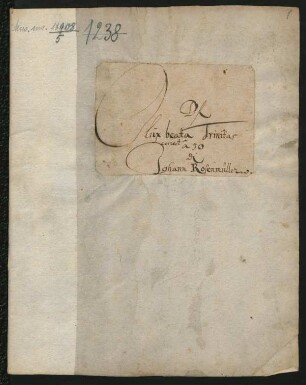 Mus. ms. 18902
5
1238
1
O Lux beata Trinitas
à 20
di
Johann Rosenmüller